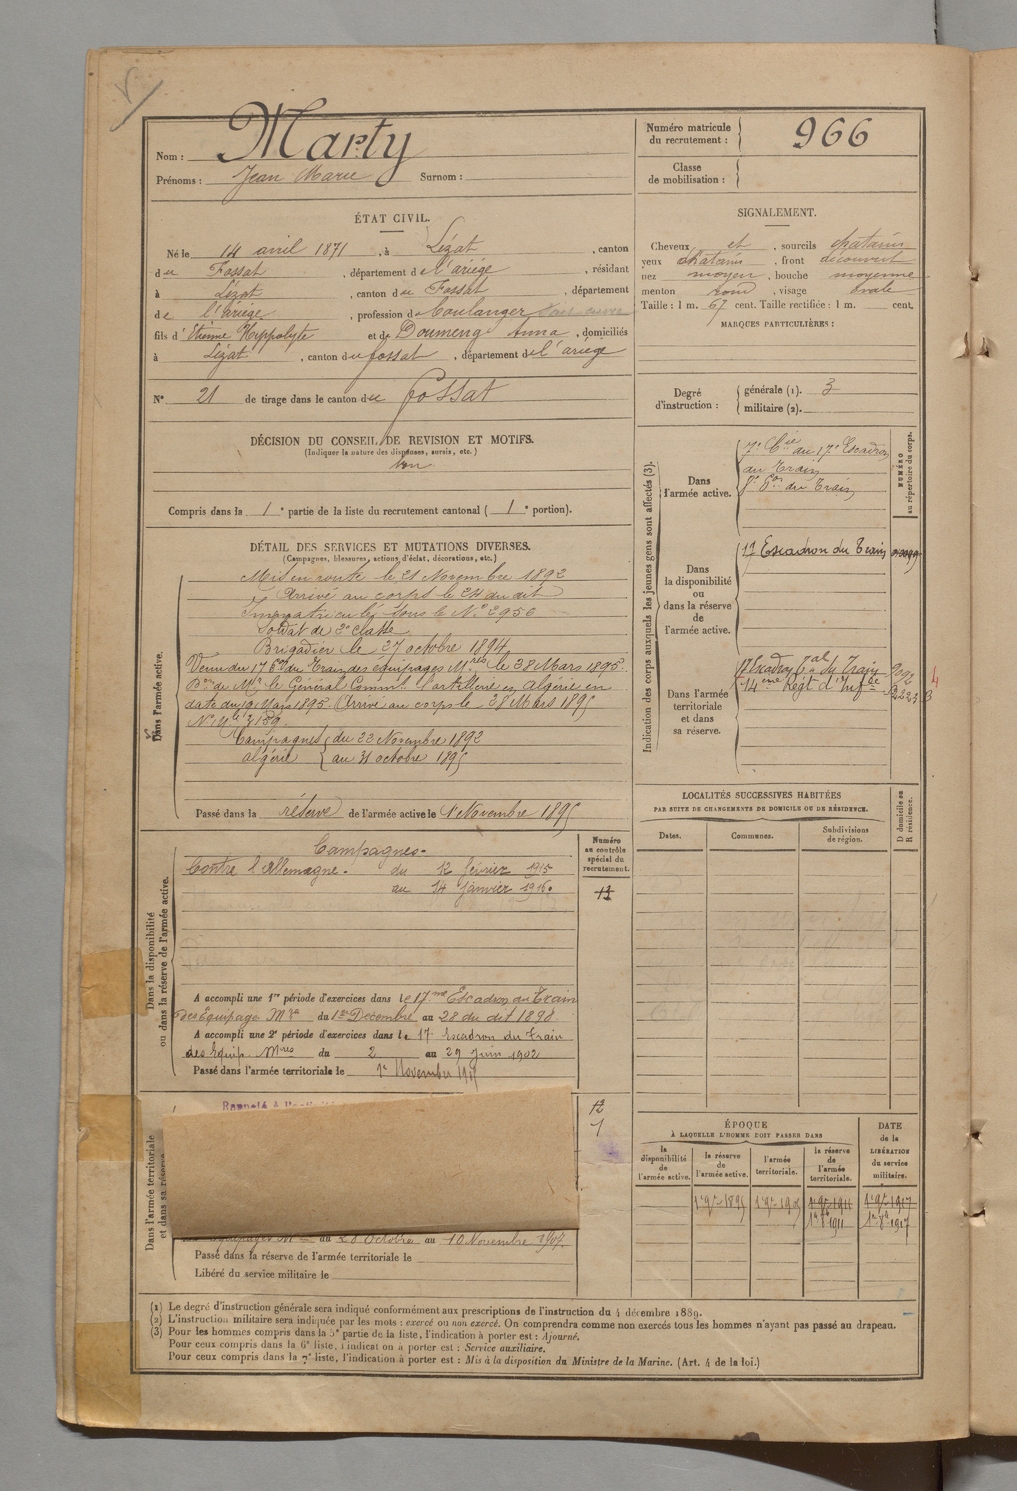 Nom : Marty
Prénoms : Jean Marie Surnom :
Numéro matricule du recrutement : 966
Classe de mobilisation :
ÉTAT CIVIL.
Né le 14 avril 1871, à Lézat, canton
du Fossat, département de l'ariége, résidant
à Lézat, canton du Fossat, département
de l'ariége, profession de boulanger
fils d'Etienne Hippolyte et de Doumenq Anna, domiciliés
à Lézat, canton du fossat, département de l'ariége
N° 21 de tirage dans le canton du Fossat
DÉCISION DU CONSEIL DE REVISION ET MOTIFS.
(Indiquer la nature des dispenses, sursis, etc.)
bon
Compris dans la 1e partie de la liste du recrutement cantonal (1e portion).
SIGNALEMENT.
Cheveux et, sourcils chatains
yeux chatains, front découvert
nez moyen, bouche moyenne
menton rond, visage ovale
Taille : 1 m. 67 cent. Taille rectifiée : 1 m. cent.
MARQUES PARTICULIÈRES :
Degré d'instruction :
générale (1). 3
militaire (2).
Indication des corps auxquels les jeunes gens sont affectés (3).
NUMÉRO au répertoire du corps.
Dans l'armée active.
7e Cie du 17e Escadron
du Train
du Train
Dans la disponibilité ou dans la réserve de l'armée active.
17 Escadron du Train
Dans l'armée territoriale et dans sa réserve.
17 Escadron tal du Train 9292
14eme Régt d'Infie
DÉTAIL DES SERVICES ET MUTATIONS DIVERSES.
(Campagnes, blessures, actions d'éclat, décorations, etc.)
Dans l'armée active.
Mis en route le 21 Novembre 1892
Arrivé au corps le 24 du dit
Immatriculé sous le N° 2956
Soldat de 2e classe
Brigadier le 27 octobre 1894
Venu du 17 Eon du Train des équipages Mres le 28 Mars 1895.
Bon de Mr le Général Commt l'artillerie en algérie en
date du 19 Mars 1895. Arrivé au corps le 28 Mars 1895
N° Mle 3159.
Campagnes du 22 Novembre 1892
algérie au 31 octobre 1895
Passé dans la réserve de l'armée active le 1r Novembre 1895
Dans la disponibilité ou dans la réserve de l'armée active.
Numéro au contrôle spécial du recrutement.
Campagnes-
Contre l'Allemagne.- du 12 février 1915
au 14 janvier 1916.
A accompli une 1re période d'exercices dans le 17me Escadron du Train
des Equipage Mres du 1er Décembre au 28 du dit 1898
A accompli une 2e période d'exercices dans le 17 Escadron du Train
des Equip. Mres du 2 au 29 juin 1902
Passé dans l'armée territoriale le 1r Novembre 1905
Dans l'armée territoriale et dans sa réserve
12
1
du 28 Octobre au 10 Novembre 1907.
Passé dans la réserve de l'armée territoriale le
Libéré du service militaire le
LOCALITÉS SUCCESSIVES HABITÉES
PAR SUITE DE CHANGEMENTS DE DOMICILE OU DE RÉSIDENCE.
Dates. Communes. Subdivisions de région. D domicile ou R résidence.
ÉPOQUE
À LAQUELLE L'HOMME DOIT PASSER DANS
la disponibilité de l'armée active. la réserve de l'armée active. l'armée territoriale. la réserve de l'armée territoriale.
DATE de la LIBÉRATION du service militaire.
1r 9re 1895 1r 9re 1905 1r 9re 1911 1r 9re 1917
(1) Le degré d'instruction générale sera indiqué conformément aux prescriptions de l'instruction du 4 décembre 1889.
(2) L'instruction militaire sera indiquée par les mots : exercé ou non exercé. On comprendra comme non exercés tous les hommes n'ayant pas passé au drapeau.
(3) Pour les hommes compris dans la 5e partie de la liste, l'indication à porter est : Ajourné.
Pour ceux compris dans la 6e liste, l'indication à porter est : Service auxiliaire.
Pour ceux compris dans la 7e liste, l'indication à porter est : Mis à la disposition du Ministre de la Marine. (Art. 4 de la loi.)